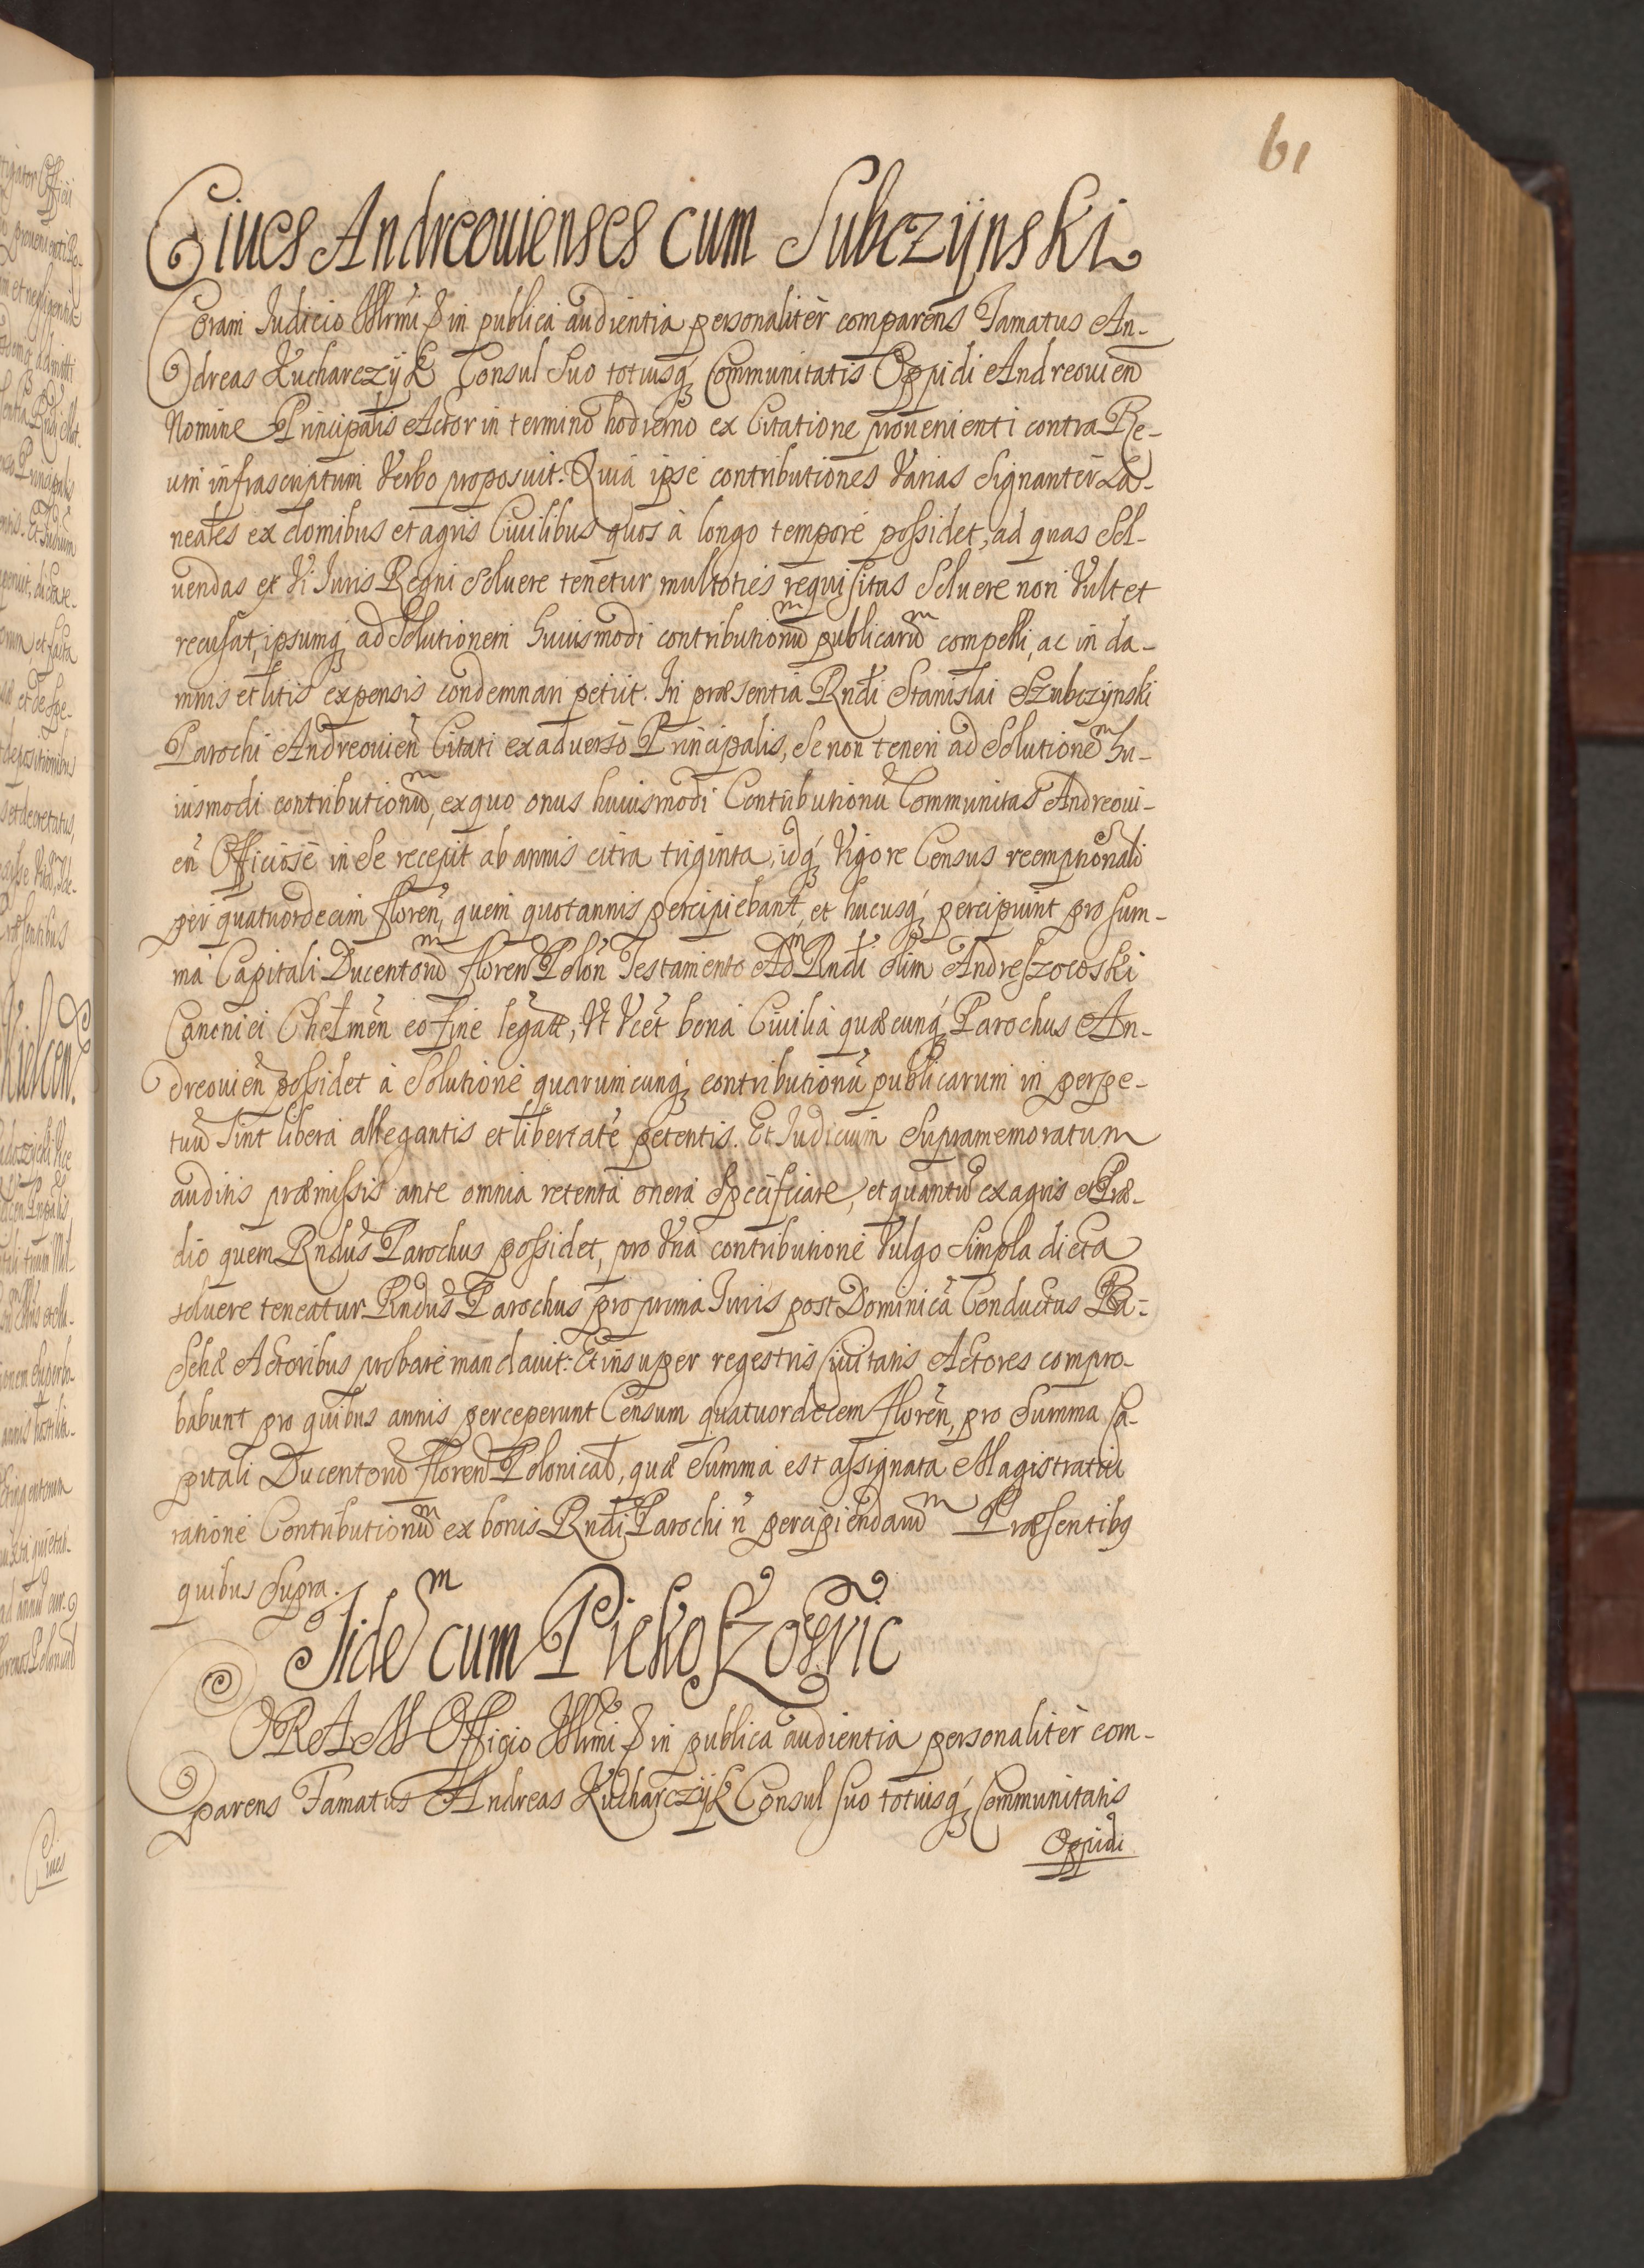 61
Ciues Andreouienses cum Subczÿnski
Coram Judicio Illrmi & in publica audientia personalitèr comparens Famatus An-
dreas Kucharczÿk Consul Suo totiusq́ Communitatis Oppidi Andreouien
Nomine Principalis Actor in termino hodierno ex Citatione prouenienti contra Re-
um infrascriptum Verbo proposuit: Quia ipse contributiones Varias Signantèr La-
neales ex domibus et agris Ciuilibus quos à longo tempore possidet, ad quas Sol-
uendas et Vi Iuris Regni Soluere tenetur multoties requisitus Soluere non Vult et
recusat, ipsumq́ ad Solutionem huiusmodi contributionũm publicarũm compelli, ac in da-
mnis et litis expensis condemnari petiit. In præsentia Rndi Stanislai Szubczÿnski
Parochi Andreouien̄ Citati ex aduerso Principalis, Se non teneri ad Solutionēm hu-
iusmodi contributionũm, ex quo onus huiusmodi Contributionū Communitas Andreoui-
en̄ Officiose in Se recepit ab annis citra triginta, idq́ Vigore Census reemptionalis
per quatuordecim floren̄, quem quotannis percipiebant, et hucusq́ percipiunt pro sum-
ma Capitali Ducentorũm floren Polon̄ Testamento Adm Rndi olim Andreszowski
Canonici Chełmen̄ eo fine legatæ, Vt Vcet bona Ciuilia quæcunq́ Parochus An-
dreouien̄ possidet à Solutione quarumcunq́ contributionū publicarum in perpe-
tuū Sint libera allegantis et libertatē petentis. Et Judicium Supramemoratum
auditis præmissis ante omnia retenta onera Specificare, et quantū ex agris et Præ-
dio quem Rndus Parochus possidet, pro Vna contributione Vulgo Simpla dicta
soluere teneatur Rndus Parochus pro prima Iuris post Dominicā Conductus Pa-
schæ Actoribus probare mandauit: Et insuper regestris Ciuitatis Actores compro-
babunt pro quibus annis perceperunt Censum quatuordecem floren̄, pro Summa Ca-
pitali Ducentorũ floren Polonical, quæ Summa est assignata Magistratui
ratione Contributionũm ex bonis Rndi Parochi n̄ percipiendarũm Præsentibq
quibus Supra.
Iidēm cum Piekoszowic
CORAM Officio Illrmi & in publica audientia personalitèr com-
parens Famatus Andreas Kucharczÿk Consul suo totiusq́ Communitatis
Oppidi